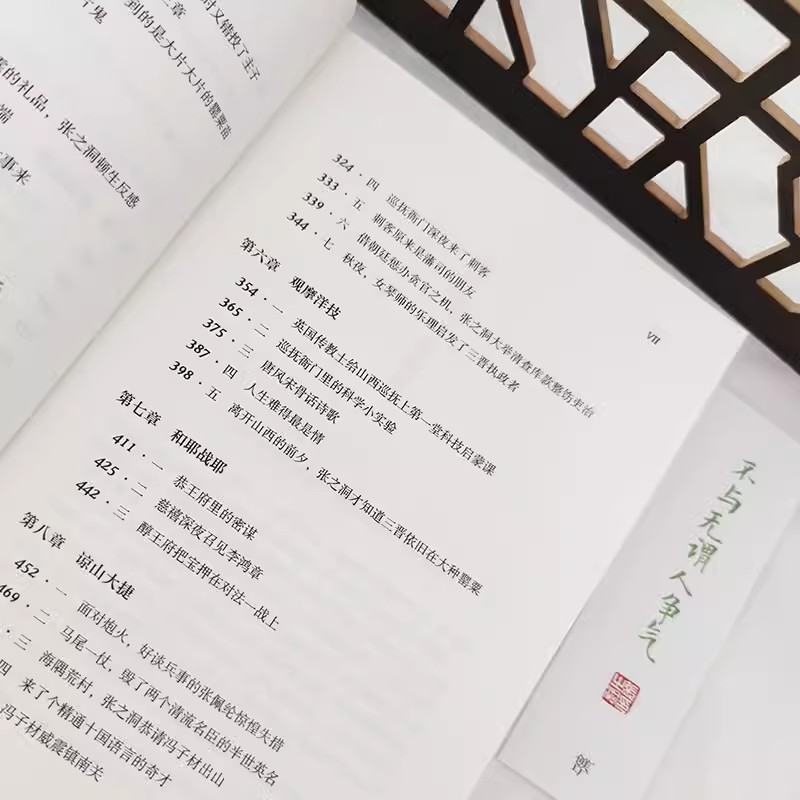 时又错投了主子
到的是大片大片的罂粟苗
的礼品，张之洞顿生反感
324·四 巡抚衙门深夜来了刺客
333·五 刺客原来是藩司的朋友
339·六 借朝廷惩办贪官之机，张之洞大举清查库款整饬吏治
344·七 秋夜，女琴师的乐理启发了三晋执政者
第六章 观摩洋技
354·一 英国传教士给山西巡抚上第一堂科技启蒙课
365·二 巡抚衙门里的科学小实验
375·三 唐风宋骨话诗歌
387·四 人生难得最是情
398·五 离开山西的前夕，张之洞才知道三晋依旧在大种罂粟
第七章 和耶战耶
411·一 恭王府里的密谋
425·二 慈禧深夜召见李鸿章
442·三 醇王府把宝押在对法一战上
第八章 谅山大捷
452·一 面对炮火，好谈兵事的张佩纶惊惶失措
469·二 马尾一仗，毁了两个清流名臣的半世英名
·三 海隅荒村，张之洞恭请冯子材出山
四 来了个精通十国语言的奇才
冯子材威震镇南关
VII
不与无谓人争气